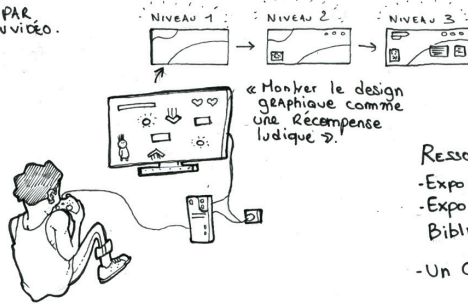 PAR
NVIDÉO.
NIVEAU 1 :
NIVEAU 2
NIVEAU 3
« Montrer le design
graphique comme
une Récompense
ludique ».
-Expo
-Expo
-Un